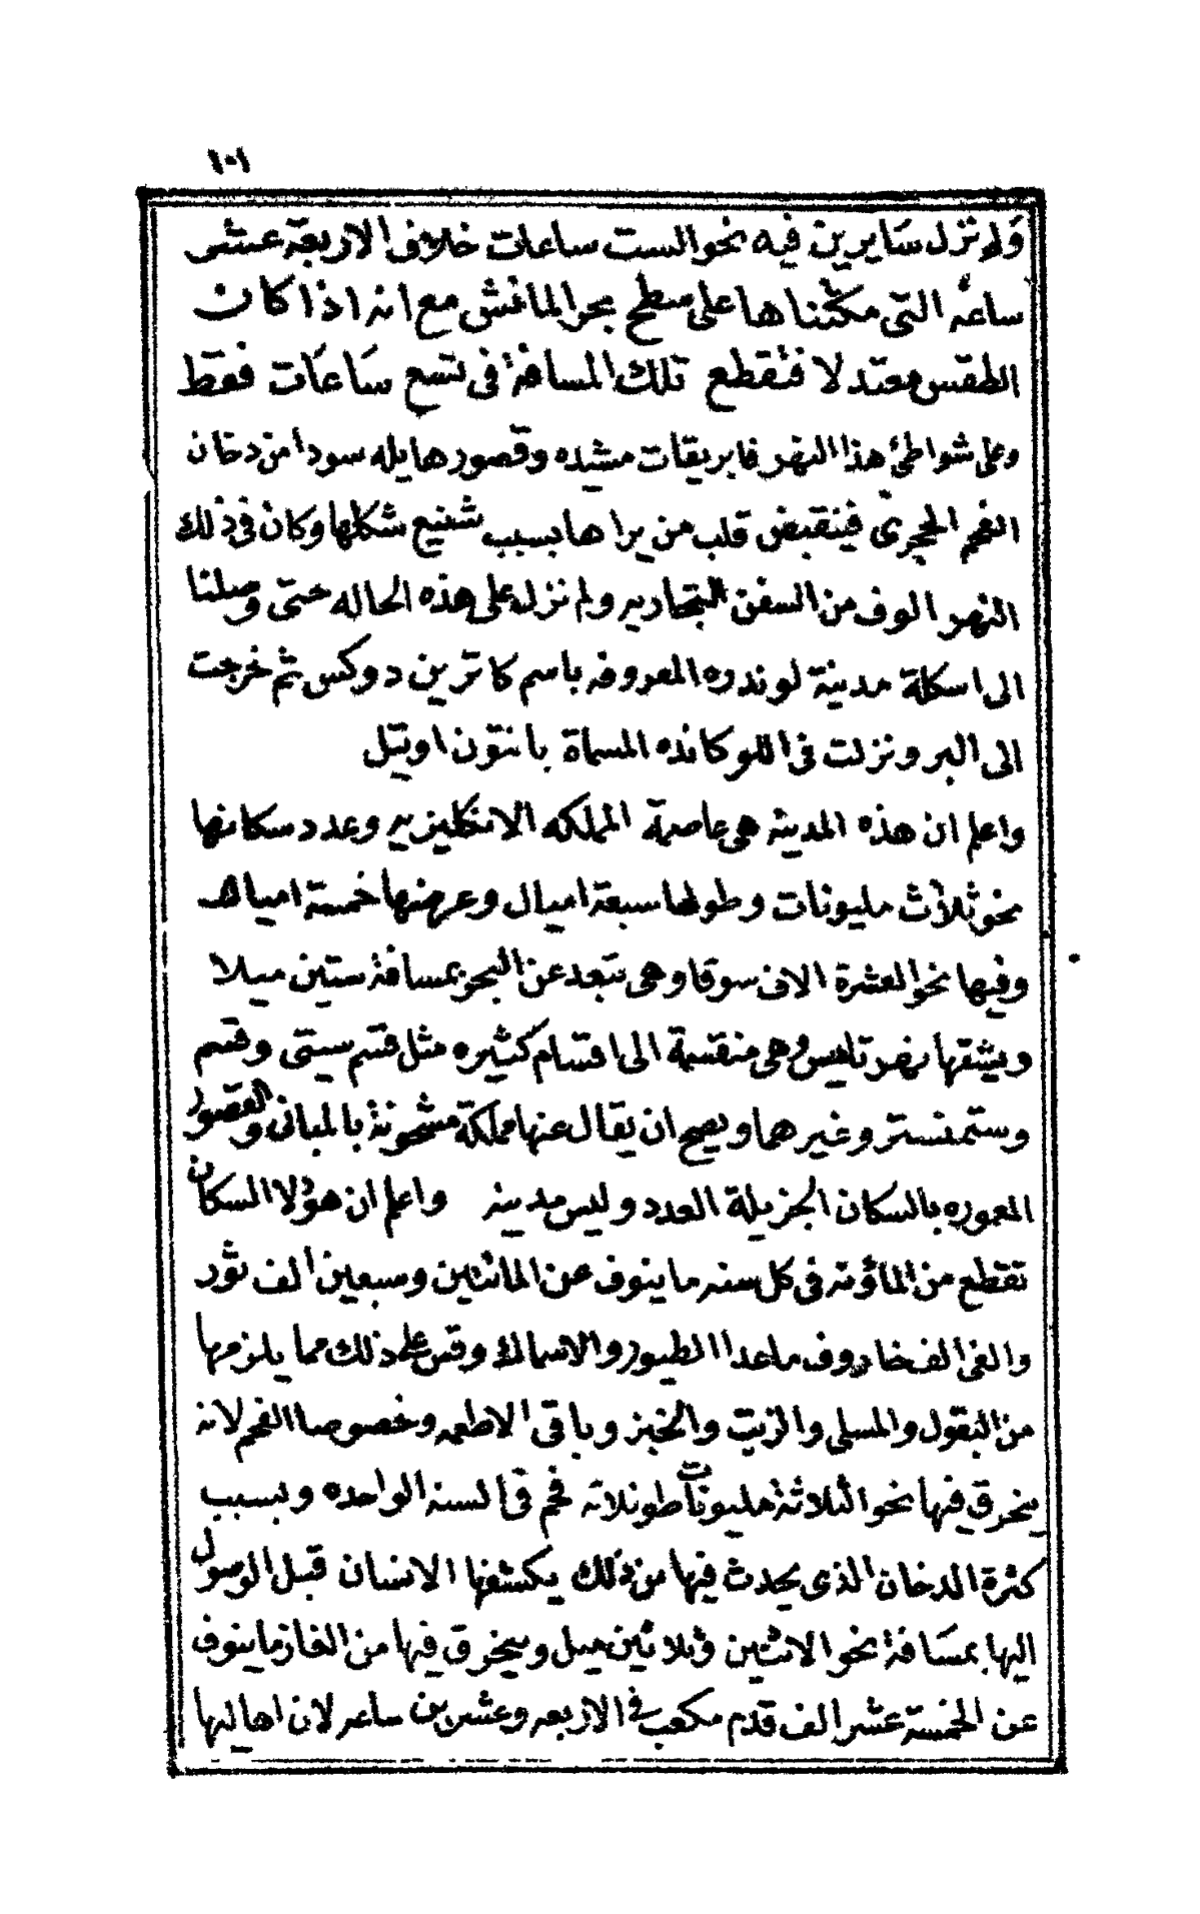 ١٠١
ولم نزل سايرين فيه نحو الست ساعات خلاف الاربعة عشر
ساعه التى مكثناها على سطح بحر المانش مع انه اذا كان
الطقس معتدلا فنقطع تلك المسافة فى تسع ساعات فقط
وعلى شواطئ هذا النهر فابريقات مشيده وقصور هايله سودا من دخان
الفحم الحجرى فينقبض قلب من يراها بسبب شنيع شكلها وكان فى ذلك
النهر الوف من السفن التجاريه ولم نزل على هذه الحاله حتى وصلنا
الى اسكلة مدينة لوندره المعروفه باسم كاترين دوكس ثم خرجت
الى البر ونزلت فى اللوكانده المسماة بانتون اوتيل
واعلم ان هذه المدينه هى عاصمة المملكه الانكليزيه وعدد سكانها
نحو ثلاث مليونات وطولها سبعة اميال وعرضها خمسة اميال
وفيها نحو العشرة الاف سوقا وهى تبعد عن البحر بمسافة ستين ميلا
ويشقها نهر تاميس وهى منقسمة الى اقسام كثيره مثل قسم سيتى وقسم
وستمنستر وغيرهما ويصح ان يقال عنها مملكة مشحونة بالمبانى والقصور
المعموره بالسكان الجزيلة العدد وليس مدينه واعلم ان هؤلا السكان
تقطع من المأونه فى كل سنه ما ينوف عن المائتين وسبعين الف ثور
والفى الف خاروف ماعدا الطيور والاسماك وقس على ذلك مما يلزمها
من البقول والمسلى والزيت والخبز وباقى الاطعمه وخصوصا الفحم لانه
ينحرق فيها نحو الثلاثة مليونات طونلاته فحم فى السنه الواحده وبسبب
كثرة الدخان الذى يحدث فيها من ذلك يكشفها الانسان قبل الوصول
اليها بمسافة نحو الاثنين وثلاثين ميل وينحرق فيها من الغاز ما ينوف
عن الخمسة عشر الف قدم مكعب فى الاربعه وعشرين ساعه لان اهاليها